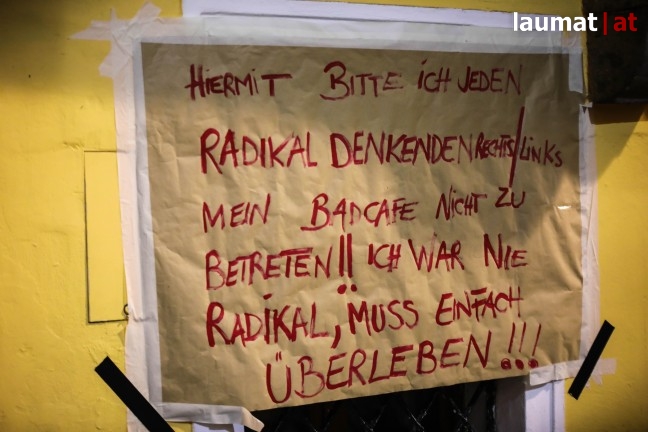 laumat|at
HIERMIT BITTE ICH JEDEN
RADIKAL DENKENDEN RECHTS/LINKS
MEIN BADCAFE NICHT ZU
BETRETEN!! ICH WAR NIE
RADIKAL, MUSS EINFACH
ÜBERLEBEN!!!